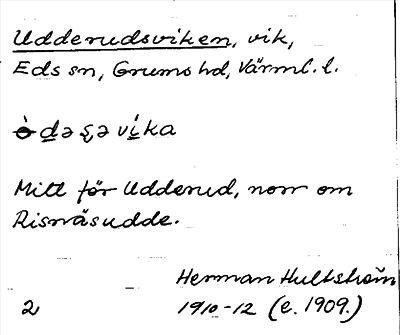 Udderudsviken, vik,
Eds sn, Grums hd, Värml. l.
ò̵d̲ə ʂə ví̲ka
Mitt för Udderud, norr om
Risnäsudde.
Herman Hultström
2 1910-12 (e. 1909.)